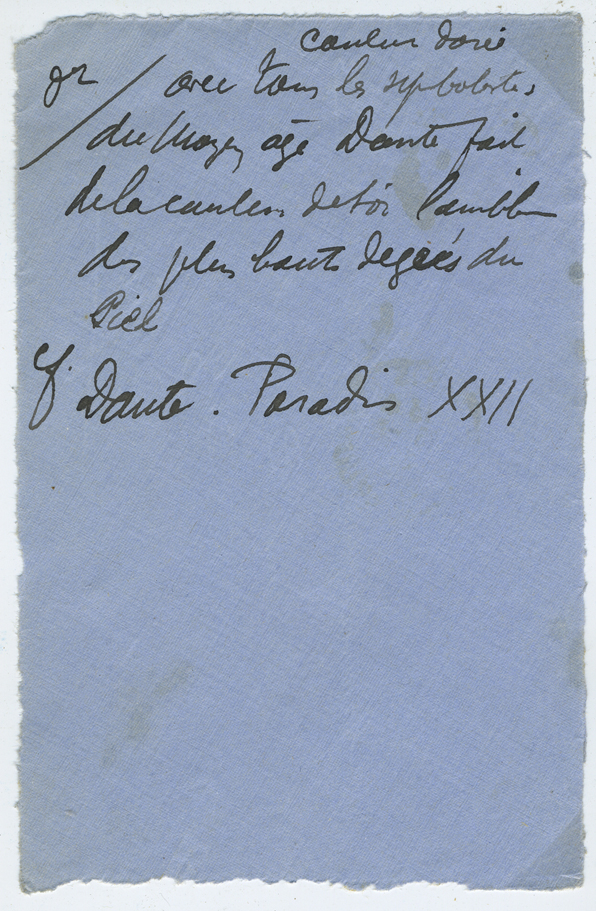 couleur dorée
or / avec tous les symbolistes
du Moyen âge Dante fait
de la couleur de l'or l'emblème
des plus hauts degrés du
Ciel
Cf. Dante. Paradis XXII